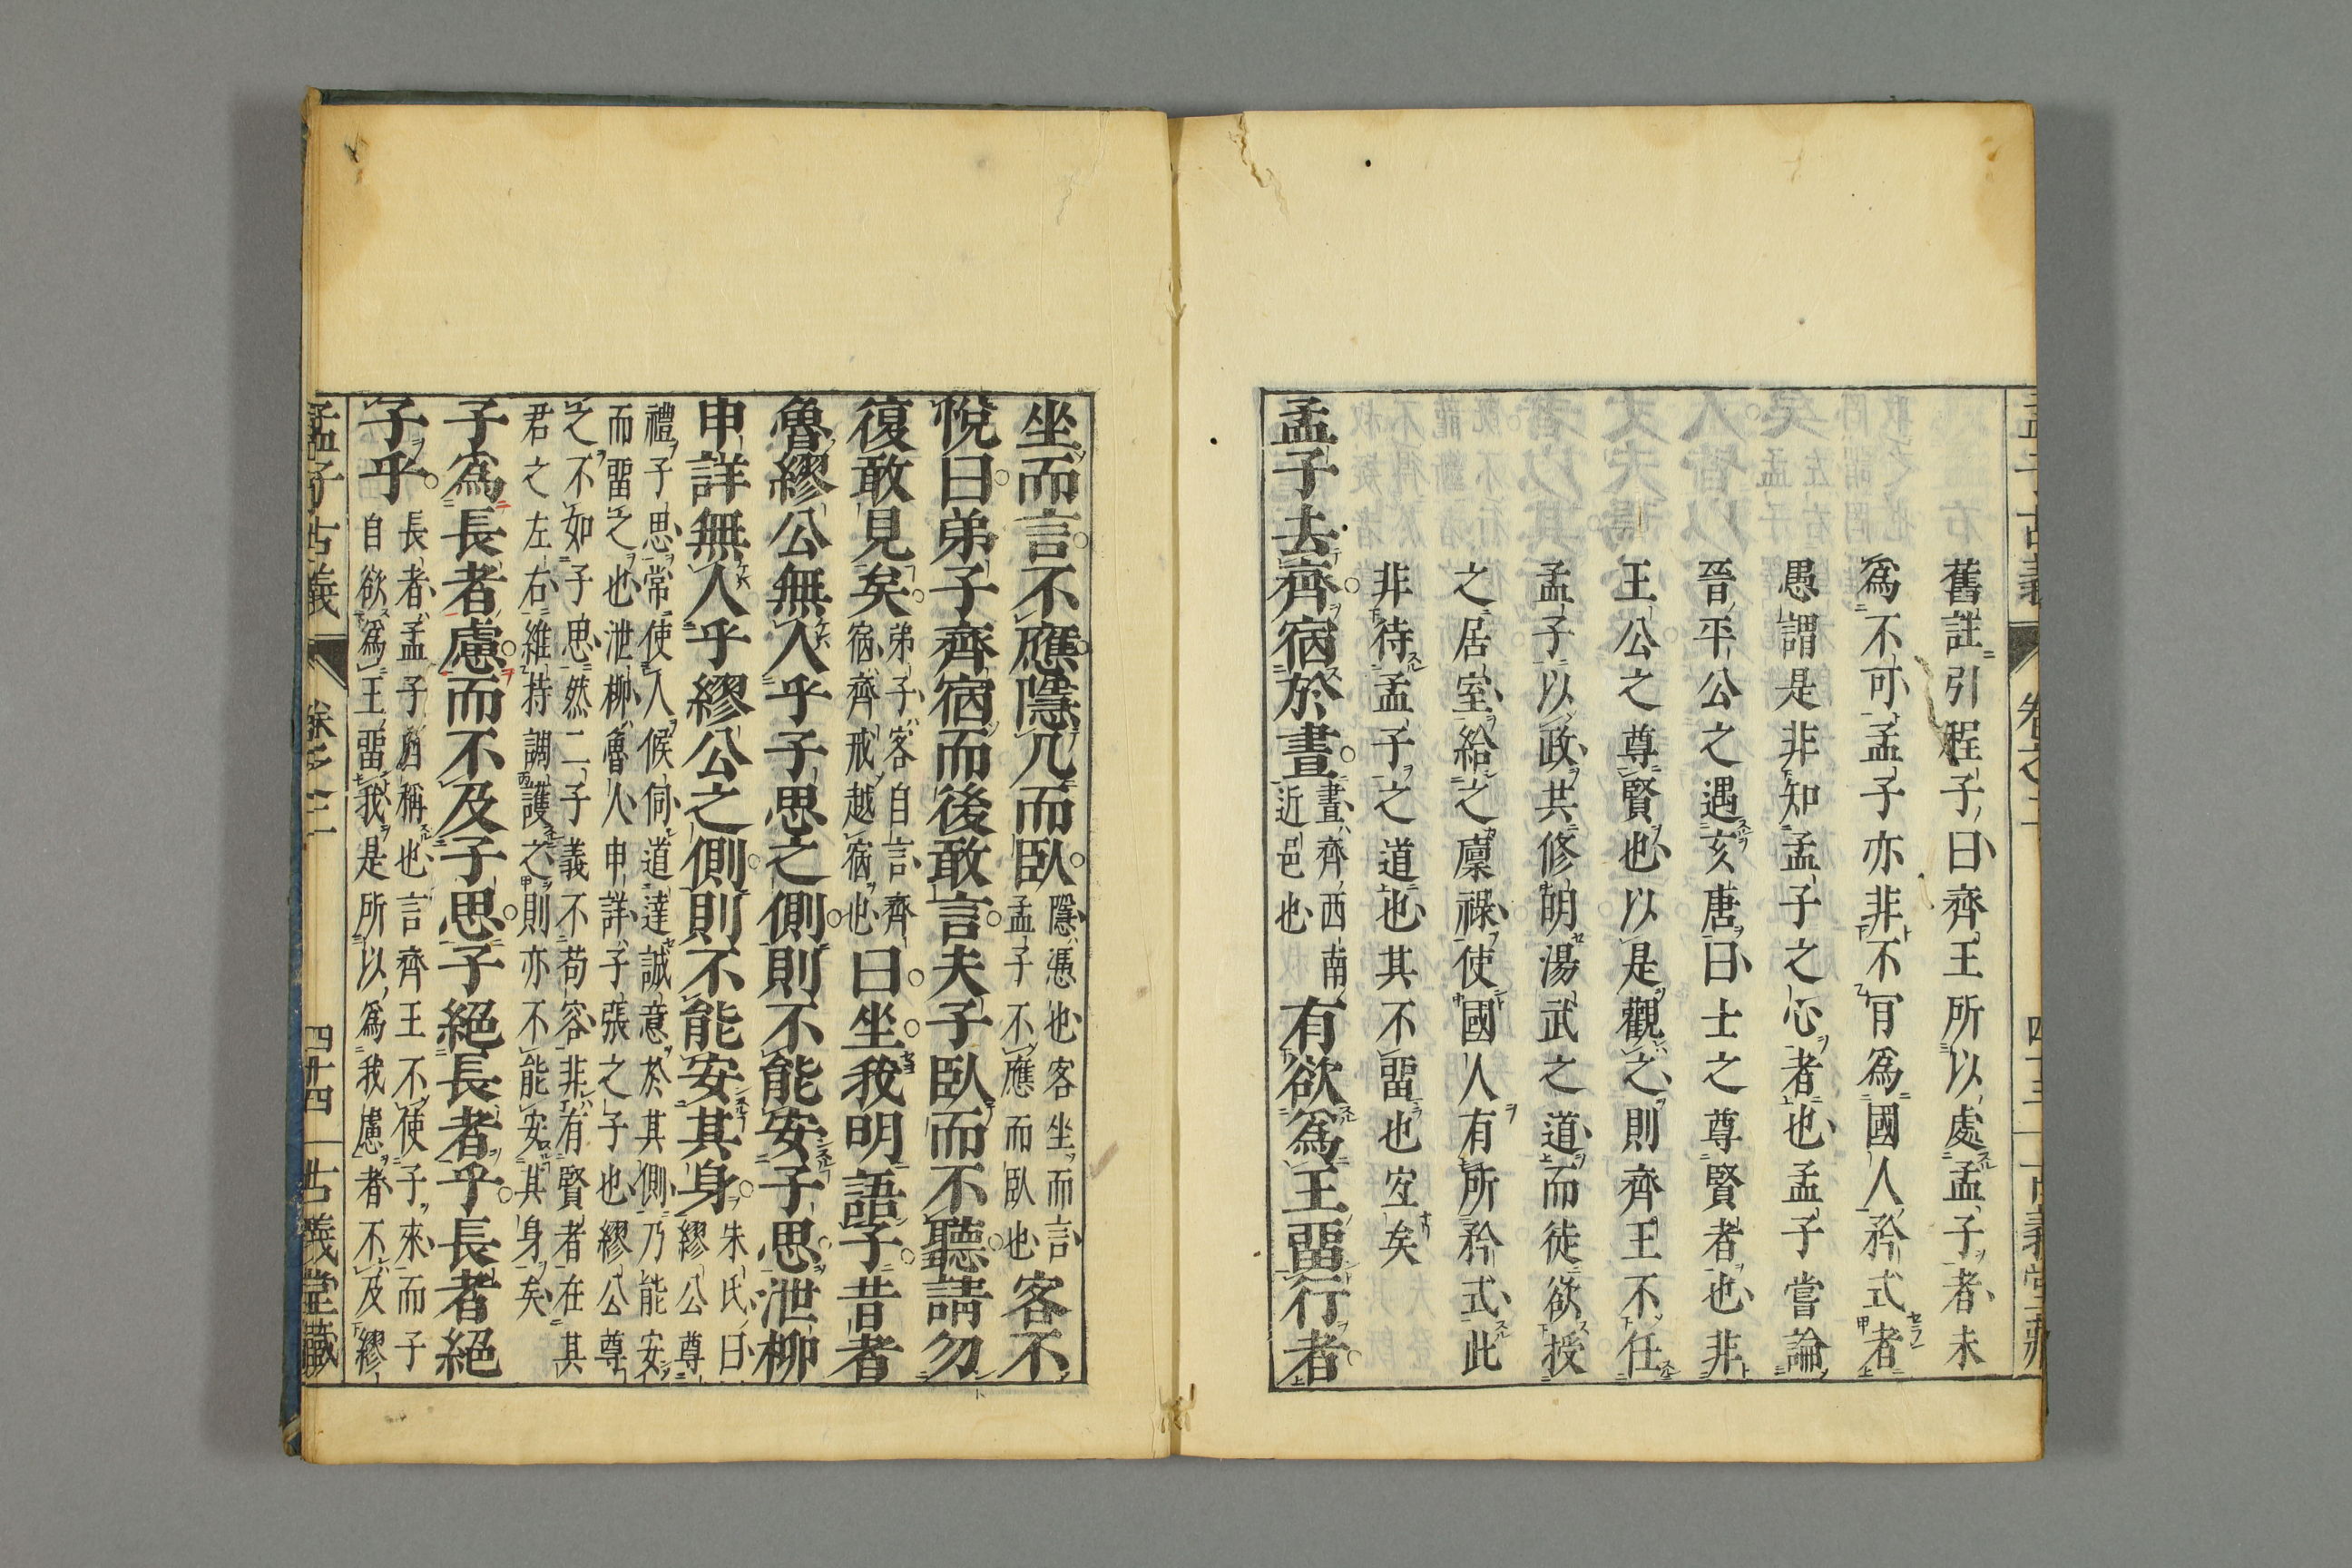 舊註引程子曰齊王所以處孟子者未
爲不可孟子亦非不肯爲國人矜式者
愚謂是非知孟子之心者也孟子嘗論
晉平公之遇亥唐曰士之尊賢者也非
王公之尊賢也以是觀之則齊王不任
孟子以政共修明湯武之道而徒欲授
之居室給之廩祿使國人有所矜式此
非待孟子之道也其不畱也宜矣
孟子去齊宿於晝
晝齊西南
近邑也
有欲爲王畱行者
坐而言不應隱几而臥
隱憑也客坐而言
孟子不應而臥也
客不
悅曰弟子齊宿而後敢言夫子臥而不聽請勿
復敢見矣
弟子客自言齊
宿齊戒越宿也
曰坐我明語子昔者
魯繆公無人乎子思之側則不能安子思泄柳
申詳無人乎繆公之側則不能安其身
朱氏曰
繆公尊
禮子思常使人候伺道達誠意於其側乃能安
而畱之也泄柳魯人申詳子張之子也繆公尊
之不如子思然二子義不苟容非有賢者在其
君之左右維持調護之則亦不能安其身矣
子爲長者慮而不及子思子絕長者乎長者絕
子乎
長者孟子自稱也言齊王不使子來而子
自欲爲王畱我是所以爲我慮者不及繆
孟子古義
卷之二
四十四
古義堂藏